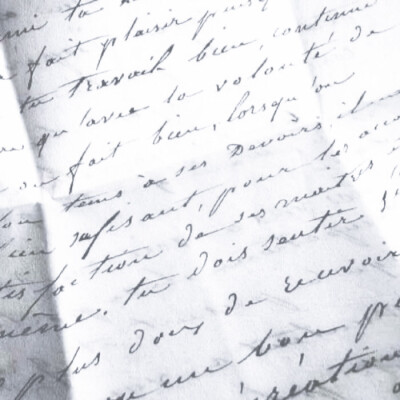 ta
fait plaisir
tu travail bien, continue
qu'avec la volonté de
fait bien, lorsqu'on
tems à ses Devoirs il
bien suffisant, pour les
faction de ses maitres
même. tu dois sentir
plus doux de recevoir
un bon
création